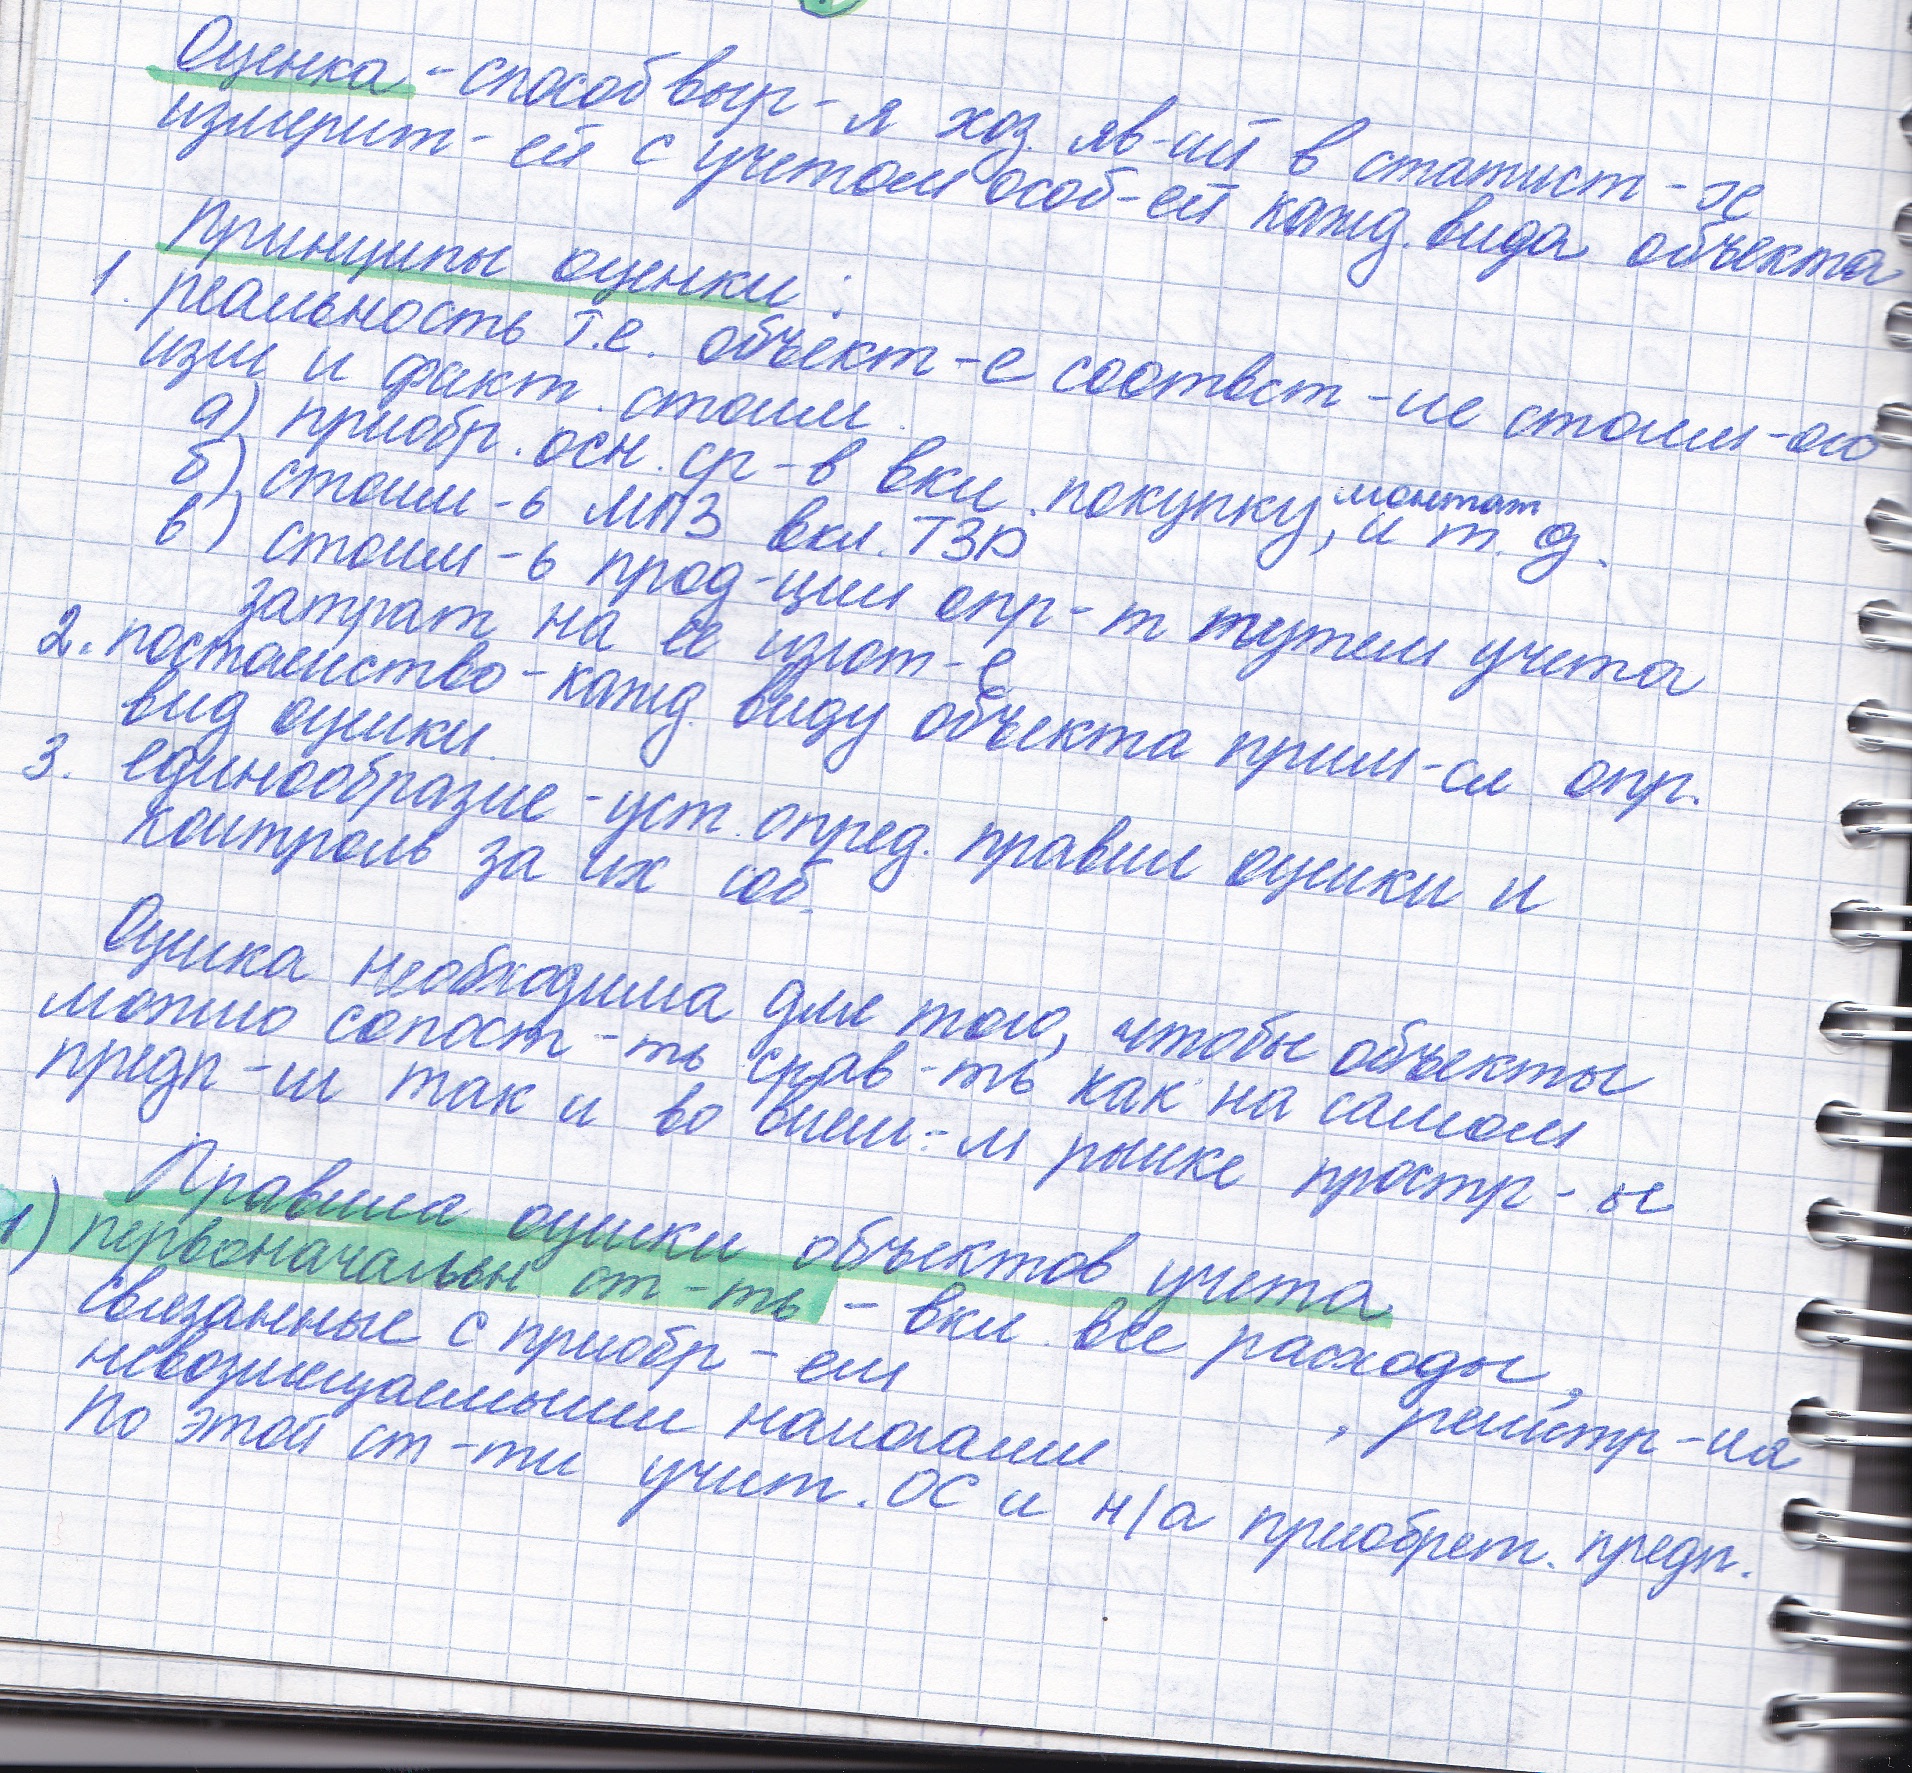 Оценка - способ выр-я хоз. яв-ий в статист-х
измерит-ей с учетом особ-ей кажд. вида объекта
Принципы оценки:
1. реальность т.е. объект-е соответст-ие стоим-ого
изм и факт. стоим.
а) приобр. осн. ср-в вкл. покупку, монтаж и т.д.
б) стоим-ь МПЗ вкл. ТЗР
в) стоим-ь прод-ции опр-т путем учета
затрат на ее изгот-е
2. постоянство - кажд. виду объекта прим-ся опр.
вид оценки.
3. единообразие - уст. опред. правил оценки и
контроль за их соб.
Оценка необходима для того, чтобы объекты
можно сопост-ть срав-ть как на самом
предп-ии так и во внеш-м рынке простр-ве
Правила оценки объектов учета
1) первоначальн ст-ть - вкл. все расходы,
связанные с приобр-ем , регистр-ия
невозмещаемыми налогами
По этой ст-ти учит. ОС и н/а приобрет. предп.